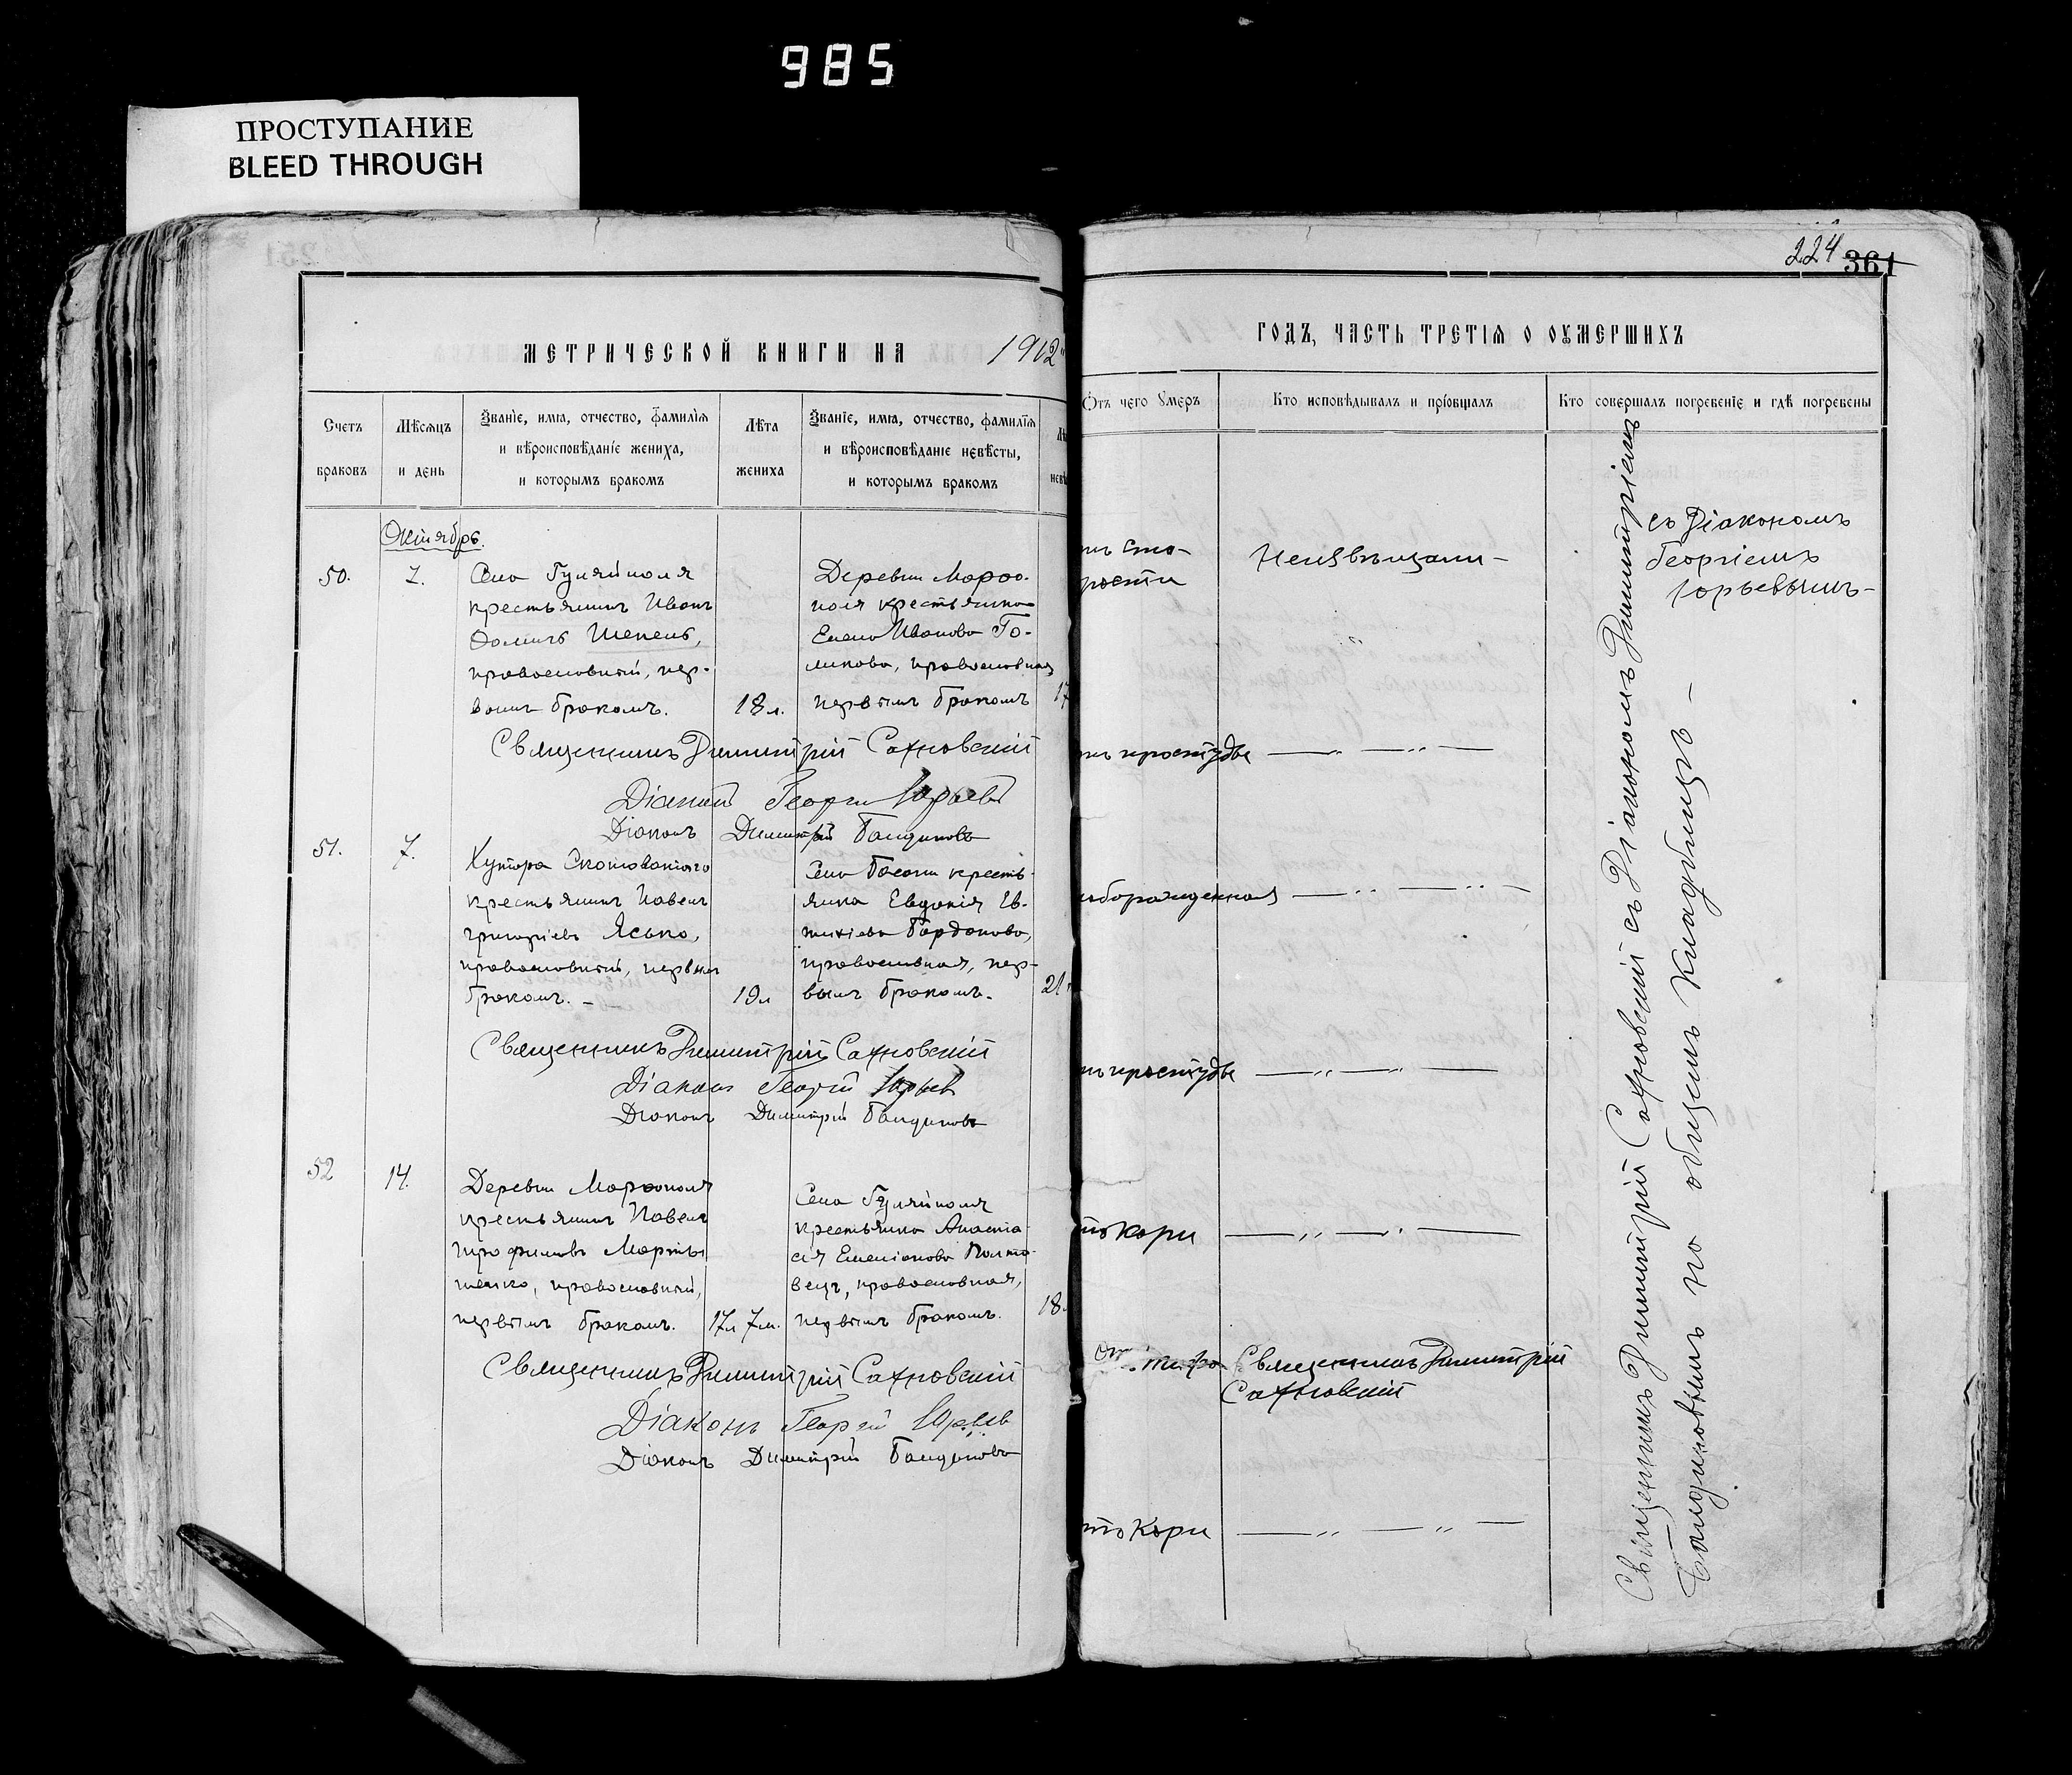 985
ПРОСТУПАНИЕ
BLEED THROUGH
МЕТРИЧЕСКОЙ КНИГИ НА 1912
Счетъ браковъ
Мѣсяцъ и день
Званіе, имя, отчество, фамилія
и вѣроисповѣданіе жениха,
и которымъ бракомъ
Лѣта жениха
Званіе, имя, отчество, фамилія
и вѣроисповѣданіе невѣсты,
и которымъ бракомъ
Октябрь.
50.
7.
Села Гуляйполя
крестьянинъ Иванъ
Фоминъ Шепель,
православный, пер-
вымъ бракомъ.
18 л.
Деревни Марфо-
поля крестьянка
Елена Иванова Го-
ликова, православная
первымъ бракомъ
17
Священникъ Димитрій Сахновскій
Діаконъ Георгій Юрьевъ
Діаконъ Димитрій Балдиновъ
51.
7.
Хутора
крестьянинъ Павелъ
Григоріевъ Ясько,
православный, первымъ
бракомъ. –
19 л
Села Басани кресть-
янка Евдокія Ев-
тихіева
православная, пер-
вымъ бракомъ.
21
Священникъ Димитрій Сахновскій
Діаконъ Георгій Юрьевъ
Діаконъ Димитрій Балдиновъ
52
14.
Деревни Марфополя
крестьянинъ Павелъ
Трофимовъ Марты-
ненко, православный,
первымъ бракомъ.
17 л 7 м.
Села Гуляйполя
крестьянка Анаста-
сія Емеліанова Полта-
вецъ, православная,
первымъ бракомъ.
18
Священникъ Димитрій Сахновскій
Діаконъ Георгій Юрьевъ
Діаконъ Димитрій Балдиновъ
224 361
ГОДЪ, ЧАСТЬ ТРЕТІЯ О ОУМЕРШИХЪ
Отъ чего умеръ
Кто исповѣдывалъ и пріобщалъ
Кто совершалъ погребеніе и гдѣ погребены
ста-
рости
Неизвѣщали –
съ Діакономъ
Георгіемъ
Юрьевымъ –
простуды — „ — „ —
— „ — „ —
простуды — „ — „ —
Кори — „ — „ —
Отъ тифа
Священникъ Димитрій
Сахновскій
Кори — „ — „ —
Священникъ Димитрій Сахновскій съ Діакономъ Димитріемъ
Балдиновымъ на общемъ кладбищѣ –